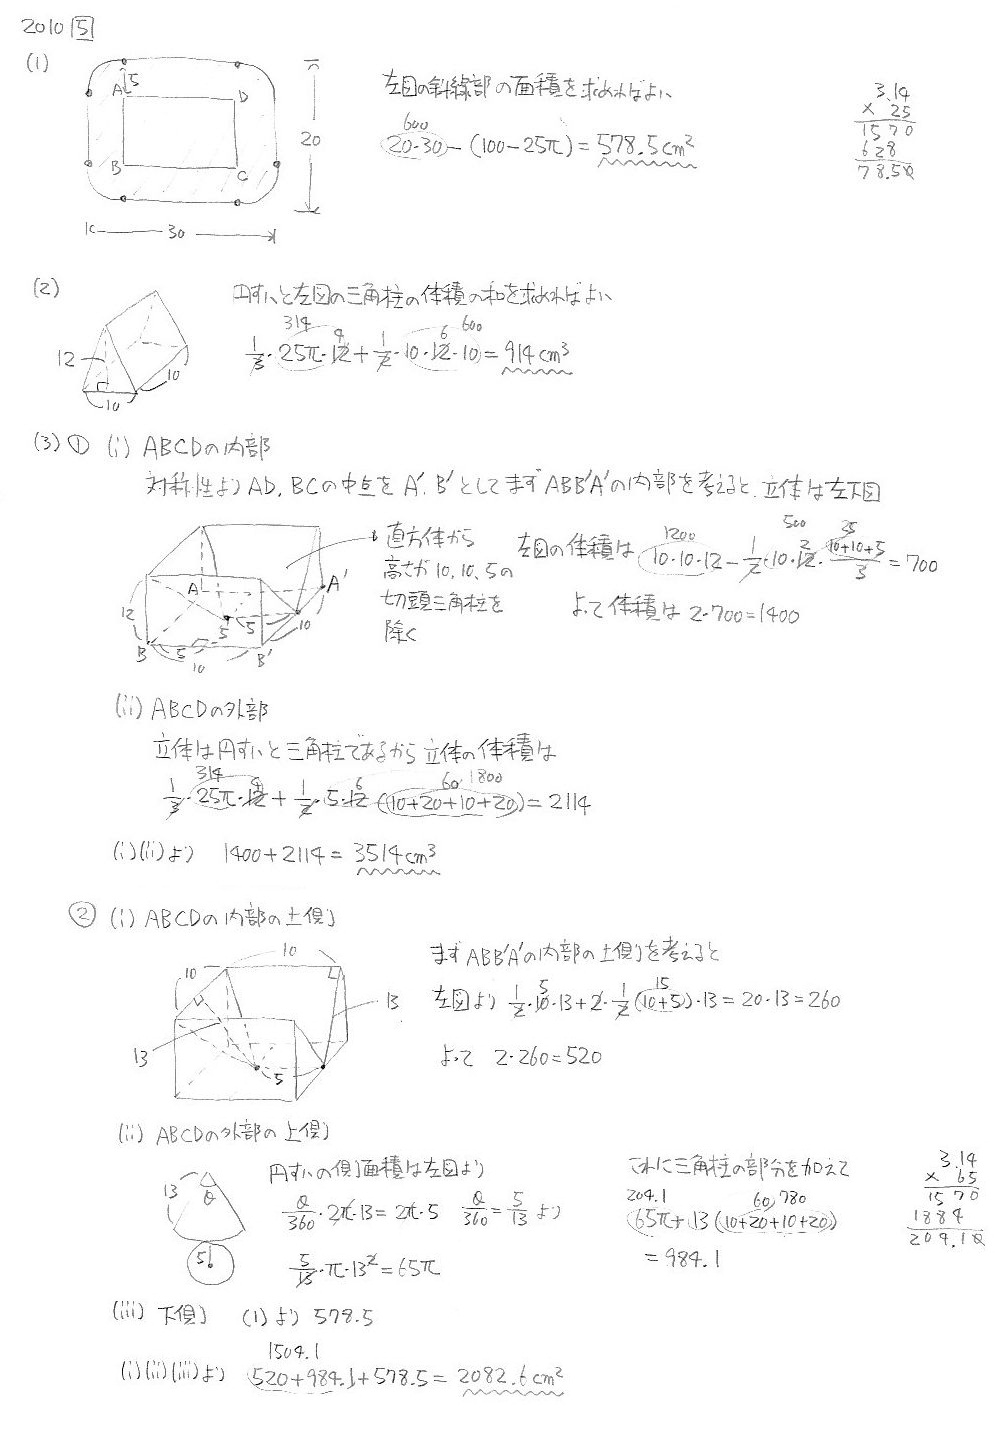 2010 5
(1)
A 5 D
B C
20
30
左図の斜線部の面積を求めればよい
600
20・30-(100-25π)=578.5cm²
3.14
× 25
1570
628
78.50
(2)
12
10
10
円すいと左図の三角柱の体積の和を求めればよい
314 4 6 600
1/3・25π・12+1/2・10・12・10=914cm³
(3) ① (i) ABCDの内部
対称性より AD, BCの中点を A', B' としてまず ABB'A'の内部を考えると、立体は左下図
A A'
12
B 5 5 5 10
10 B'
直方体から
高さが10, 10, 5の
切頭三角柱を
除く
1200 500 2 25
左図の体積は 10・10・12-1/2・10・12・(10+10+5)/3=700
よって体積は 2・700=1400
(ii) ABCDの外部
立体は円すいと三角柱であるから立体の体積は
314 4 6 60 1800
1/3・25π・12+1/2・5・12・(10+20+10+20)=2114
(i)(ii)より 1400+2114=3514cm³
② (i) ABCDの内部の上側
10
10
13
13
5
まず ABB'A'の内部の上側を考えると
5 15
左図より 1/2・10・13+2・1/2(10+5)・13=20・13=260
よって 2・260=520
(ii) ABCDの外部の上側
13 θ
5
円すいの側面積は左図より
θ/360・2π・13=2π・5 θ/360=5/13 より
5/13・π・13²=65π
これに三角柱の部分を加えて
204.1 60 780
65π+13(10+20+10+20)
=984.1
3.14
× 65
1570
1884
204.10
(iii) 下側 (1)より 578.5
1504.1
(i)(ii)(iii)より 520+984.1+578.5=2082.6cm²